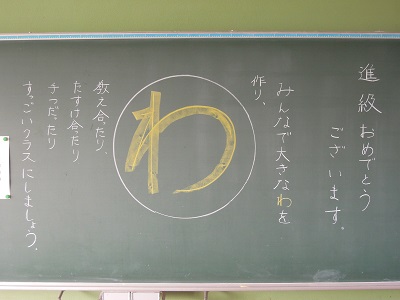 進級おめでとう
ございます。
みんなで大きなわを
作り、
わ
教え合ったり、
たすけ合ったり
手つだったり
すっごいクラスにしましょう。